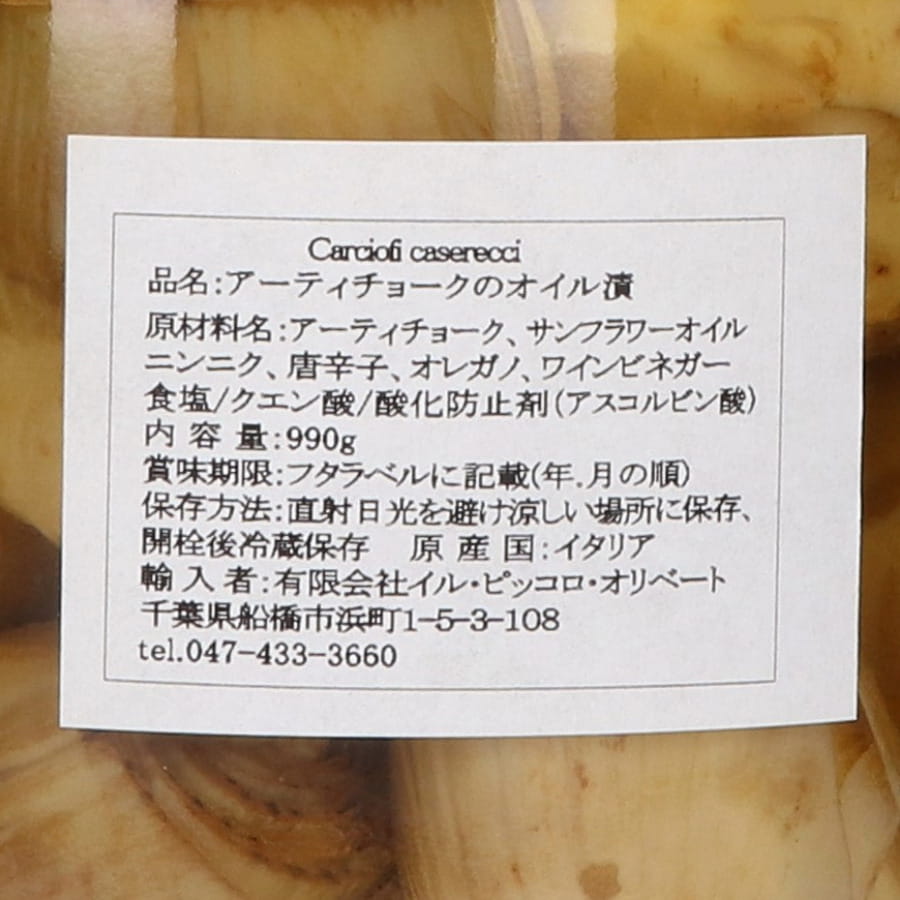 Carciofi caserecci
品名:アーティチョークのオイル漬
原材料名:アーティチョーク、サンフラワーオイル
ニンニク、唐辛子、オレガノ、ワインビネガー
食塩/クエン酸/酸化防止剤(アスコルビン酸)
内容量:990g
賞味期限:フタラベルに記載(年.月の順)
保存方法:直射日光を避け涼しい場所に保存、
開栓後冷蔵保存 原産国:イタリア
輸入者:有限会社イル・ピッコロ・オリベート
千葉県船橋市浜町1-5-3-108
tel.047-433-3660